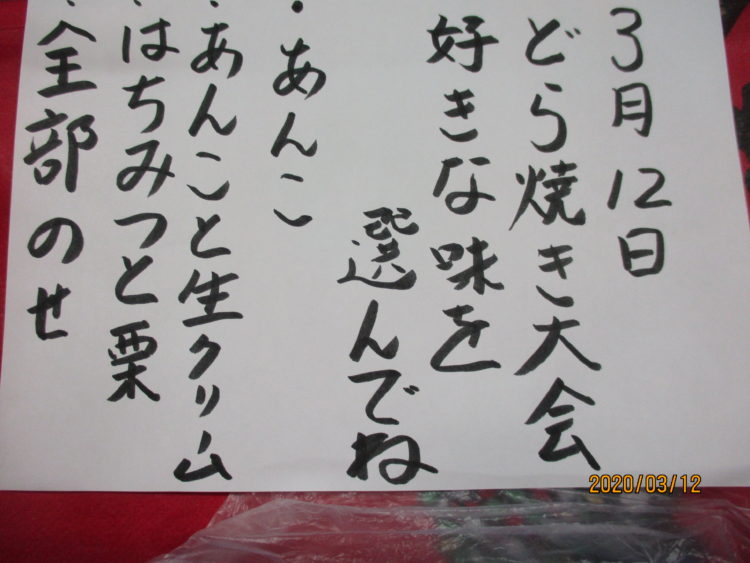 3月12日
どら焼き大会
好きな味を
選んでね
・あんこ
・あんこと生クリーム
・はちみつと栗
・全部のせ
2020/03/12